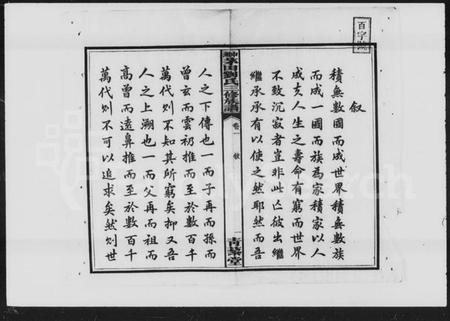 百字號
叙
積無數國而成世界積無數族
而成一國而族為家積家以人
成夫人生之壽命有窮而世界
不致沉寂者豈非此亾彼出繼
繼承承有以使之然耶然而吾
神山劉氏三修族譜
卷一
叙
青藜堂
人之下傳也一而子再而孫而
曾元而雲礽推而至於數百千
萬代則不知其所窮矣抑又吾
人之上溯也一而父再而祖而
高曾而遠鼻推而至於數百千
萬代則不可以追求矣然則世